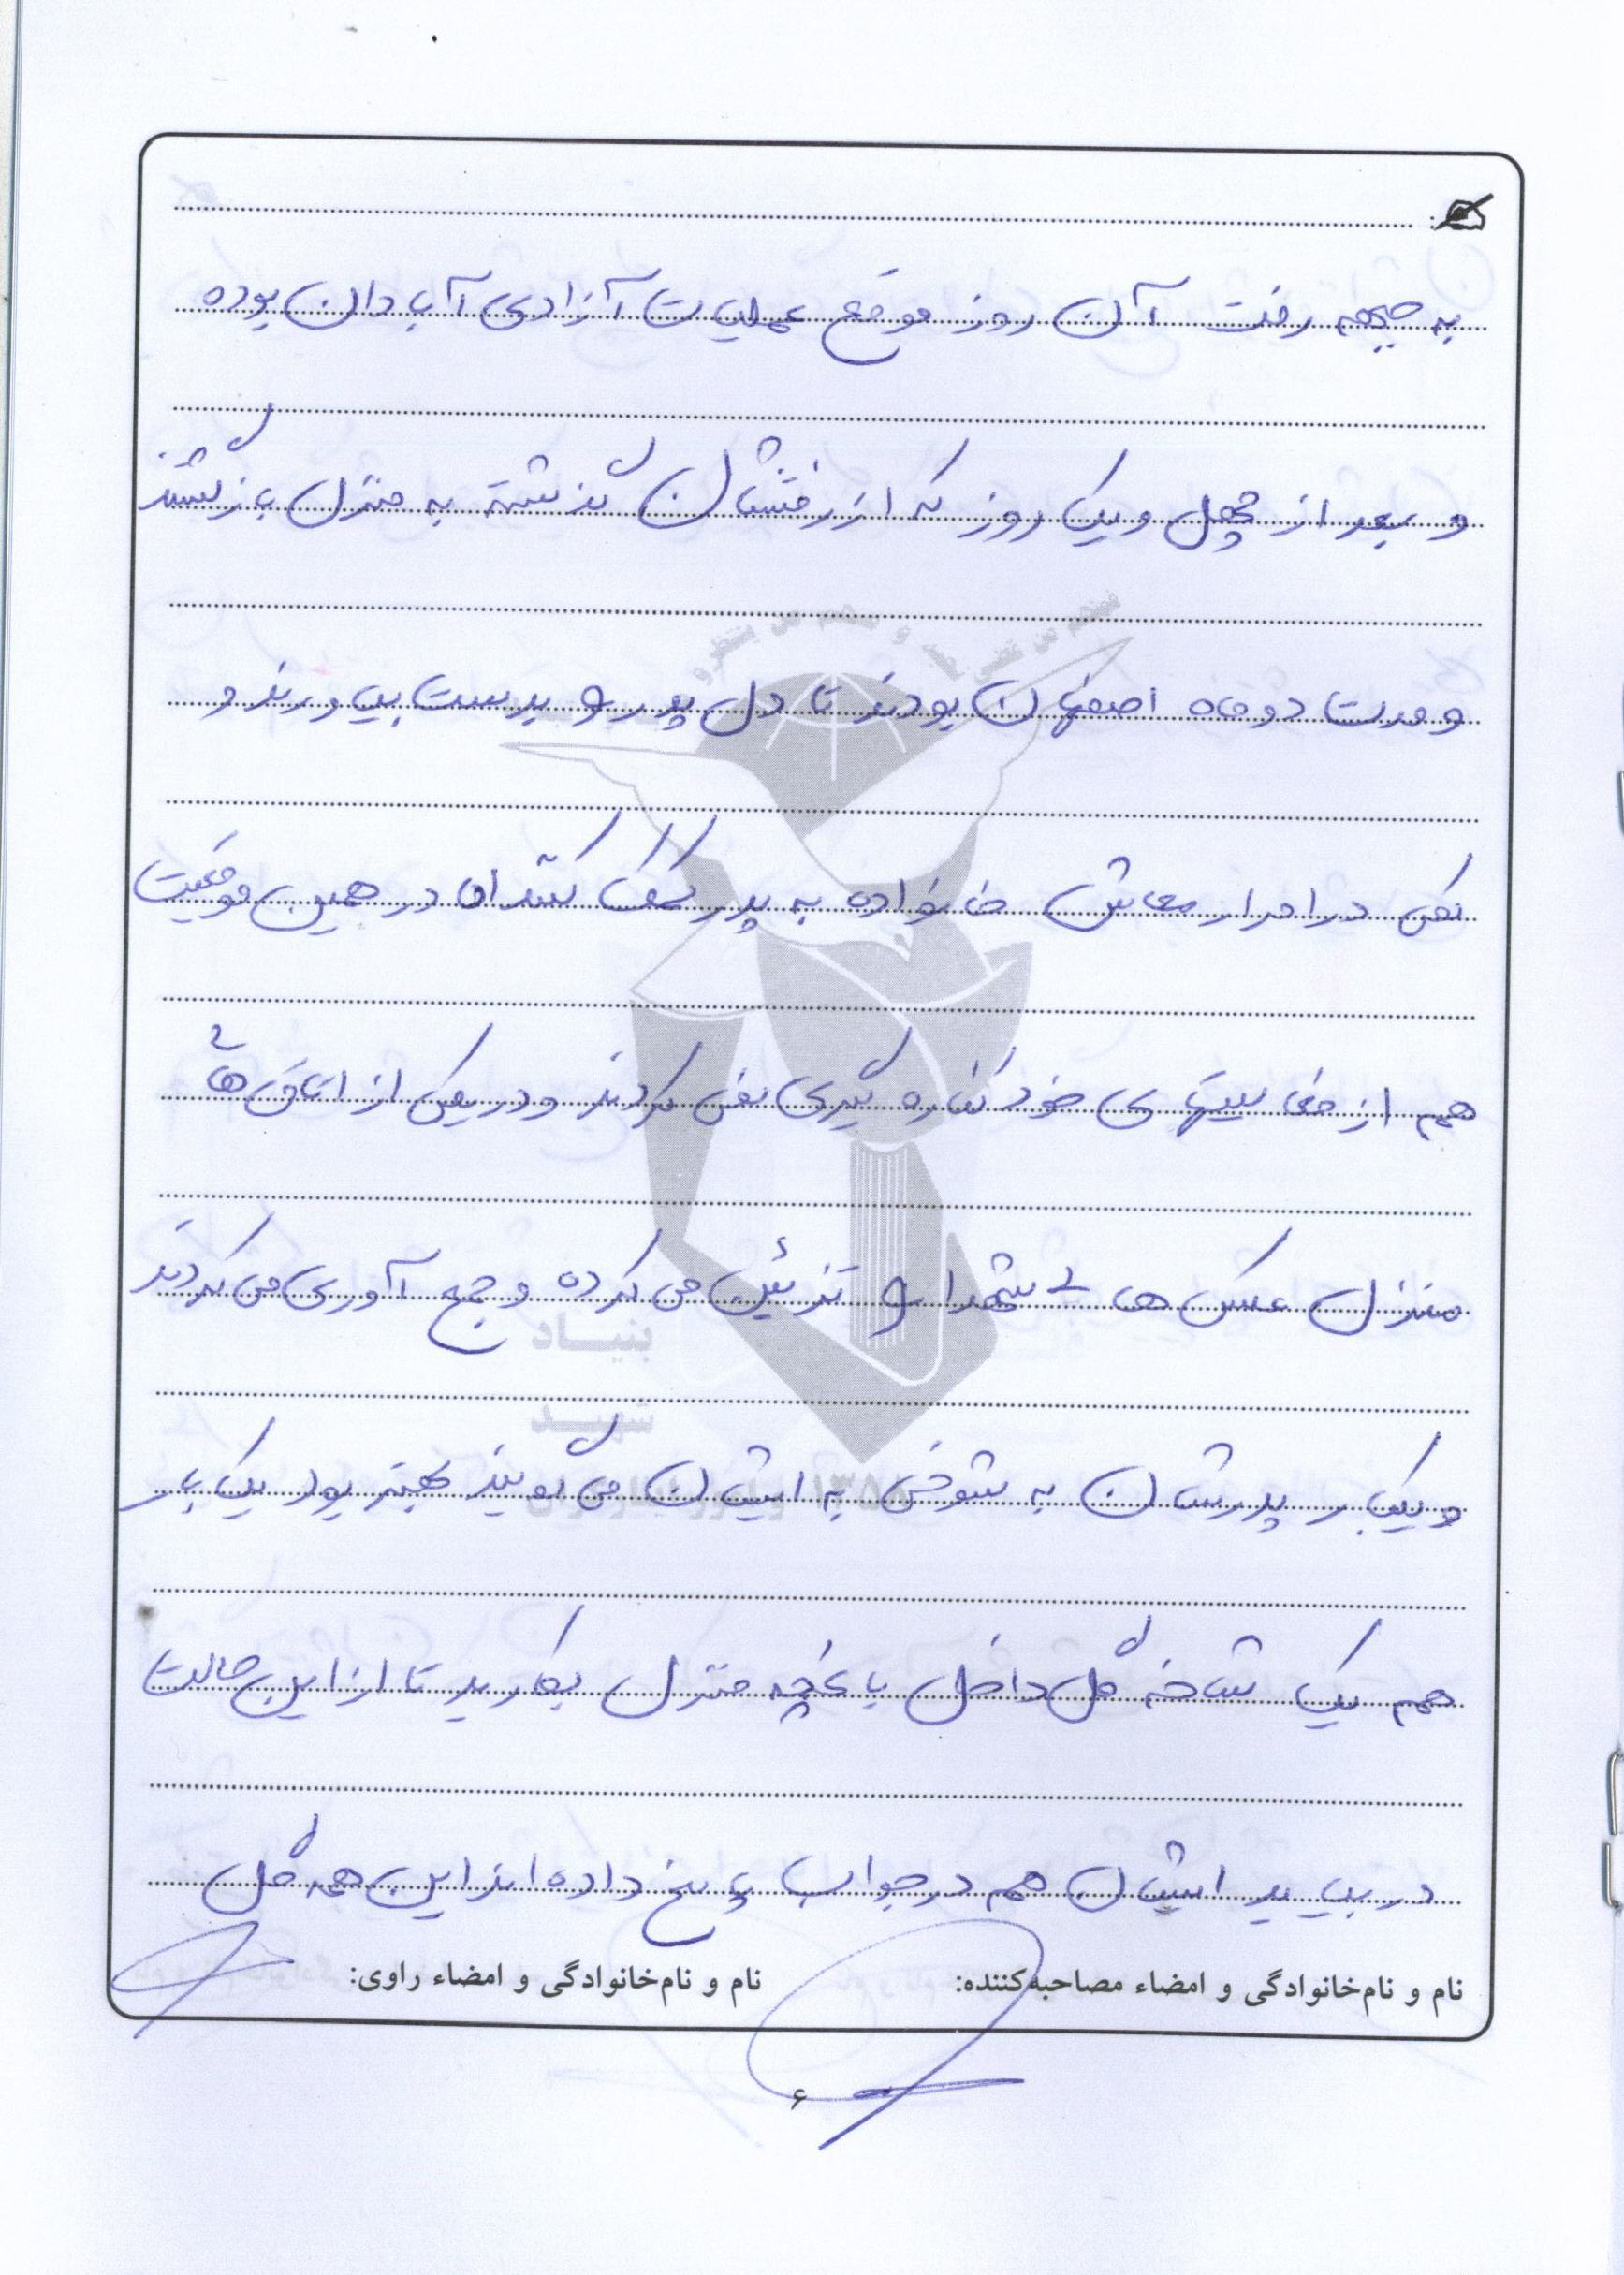 به جبهه رفت آن روز موقع عملیات آزادی آبادان بوده
و بعد از چهل و یک روز که از رفتنشان گذشته به منزل بازگشتند
و مدت دو ماه اصفهان بودند تا دل پدر رو بدست بیاورند و
کمی در امرار معاش خانواده به پدر کمک کنند اما در همین موقعیت
هم از فعالیتهای خود کناره گیری نمی کردند و در یکی از اتاق های
منزل عکس های شهدا رو تزئین می کرده و جمع آوری می کردند
و یکبار پدرشان به شوخی به ایشان می گویند بهتر بود یک بار
هم یک شاخه گل داخل باغچه منزل بکارید تا از این حالت
در بیایید ایشان هم در جواب پاسخ داده اند این همه گل
نام و نام‌خانوادگی و امضاء مصاحبه‌کننده: نام و نام‌خانوادگی و امضاء راوی:
۶
بنیاد
شهید